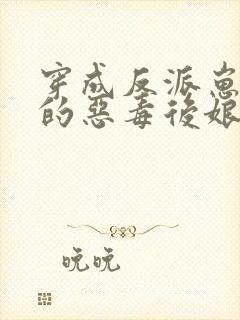 穿成反派崽
的惡毒後娘
晚晚